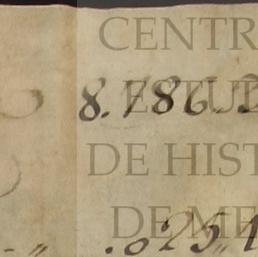 CENTR
8.786.
ESTUD
DE HIST
DE ME
.025.1